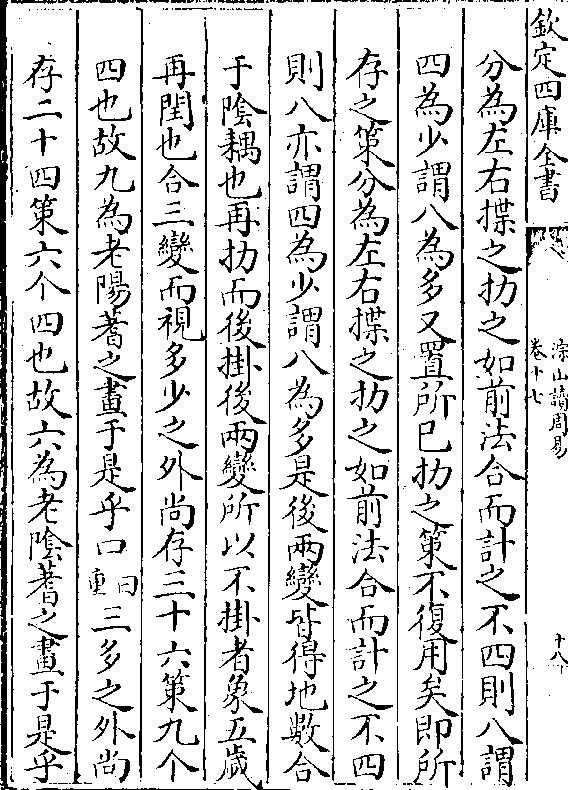 欽定四庫全書
淙山讀周易
卷十七
十八
分為左右揲之扐之如前法合而計之不四則八謂
四為少謂八為多又置所已扐之策不復用矣即所
存之策分為左右揲之扐之如前法合而計之不四
則八亦謂四為少謂八為多是後兩變皆得地數合
于陰耦也再扐而後掛後兩變所以不掛者象五歲
再閏也合三變而視多少之外尚存三十六策九个
四也故九為老陽蓍之畫于是乎口曰重三多之外尚
存二十四策六个四也故六為老陰蓍之畫于是乎